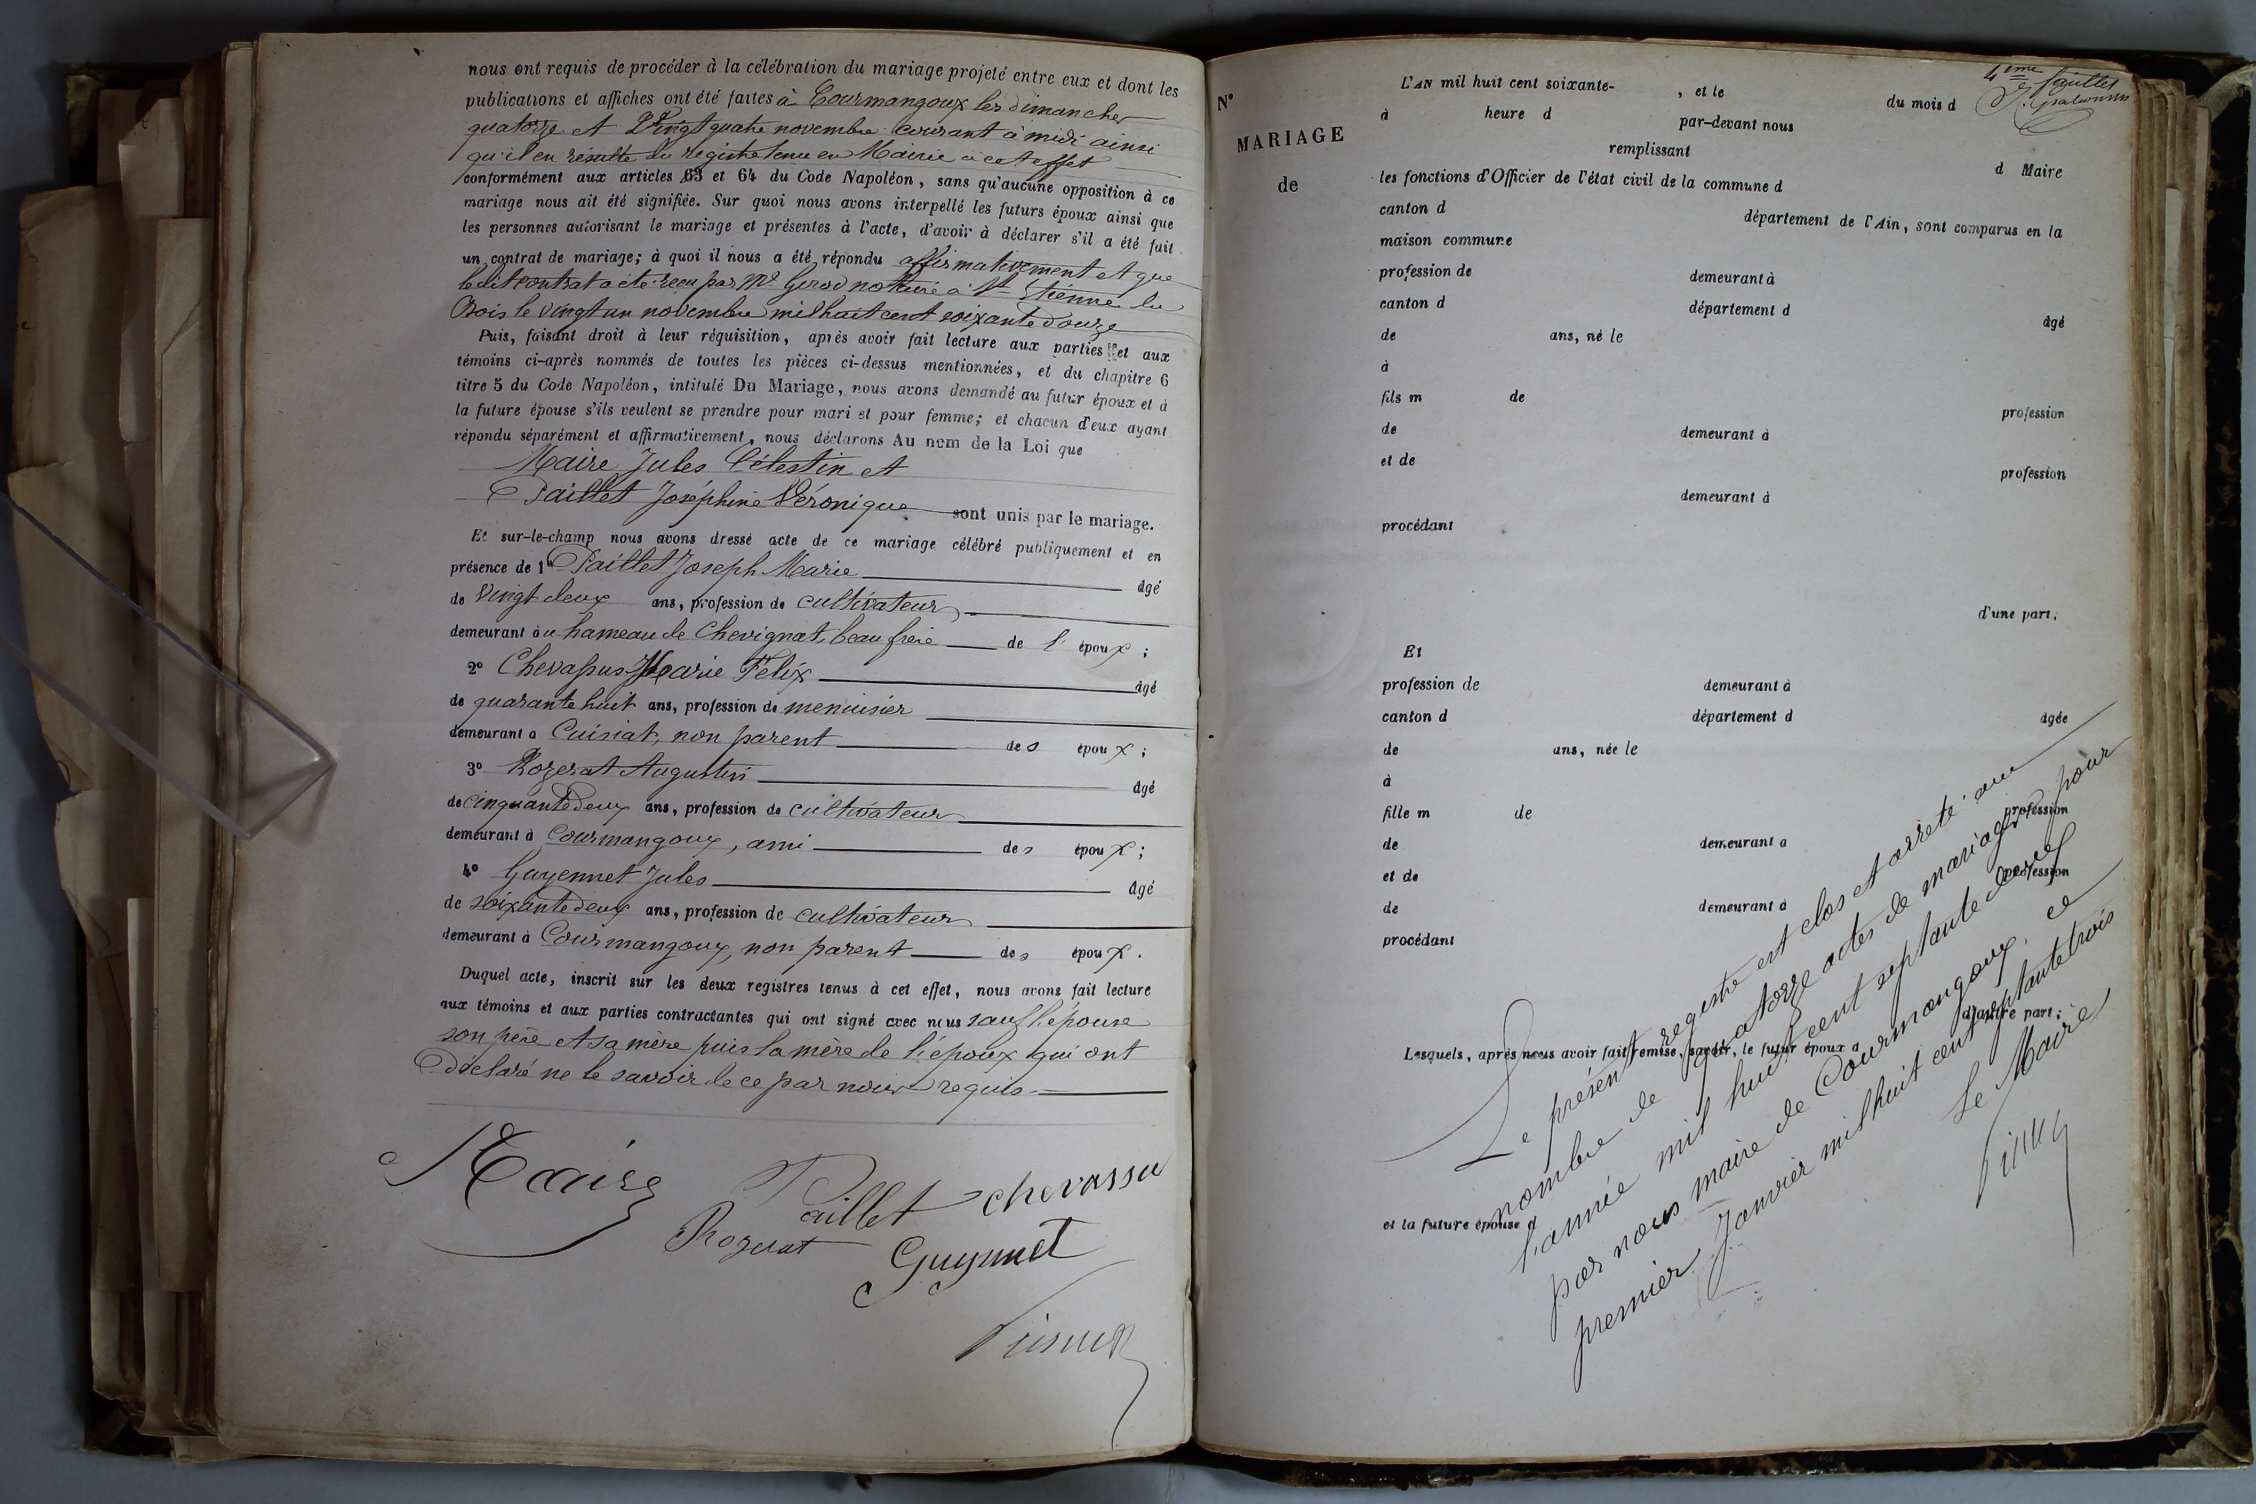 nous ont requis de procéder à la célébration du mariage projeté entre eux et dont les
publications et affiches ont été faites à Courmangoux les dimanches
quatorze et Vingt quatre novembre courant à midi ainsi
qu'il en résulte du registre tenu en Mairie à cet effet
conformément aux articles 63 et 64 du Code Napoléon, sans qu'aucune opposition à ce
mariage nous ait été signifiée. Sur quoi nous avons interpellé les futurs époux ainsi que
les personnes autorisant le mariage et présentes à l'acte, d'avoir à déclarer s'il a été fait
un contrat de mariage; à quoi il nous a été répondu affirmativement et que
ledit contrat a été reçu par Me Girod notaire à St Etienne du
Bois le vingt un novembre mil huit cent soixante douze
Puis, faisant droit à leur réquisition, après avoir fait lecture aux parties et aux
témoins ci-après nommés de toutes les pièces ci-dessus mentionnées, et du chapitre 6
titre 5 du Code Napoléon, intitulé Du Mariage, nous avons demandé au futur époux et à
la future épouse s'ils veulent se prendre pour mari et pour femme; et chacun d'eux ayant
répondu séparément et affirmativement, nous déclarons Au nom de la Loi que
Maire Jules Célestin et
Paillet Joséphine Véronique sont unis par le mariage.
Et sur-le-champ nous avons dressé acte de ce mariage célébré publiquement et en
présence de 1° Paillet Joseph Marie âgé
de Vingt deux ans, profession de cultivateur
demeurant au hameau de Chevignat, beau frère de l' époux ;
2° Chevassus Marie Félix âgé
de quarante huit ans, profession de menuisier
demeurant à Cuisiat, non parent des époux ;
3° Rozerat Augustin âgé
de cinquante deux ans, profession de cultivateur
demeurant à Courmangoux, ami des époux ;
4° Guyennet Jules âgé
de soixante deux ans, profession de cultivateur
demeurant à Courmangoux, non parent des époux .
Duquel acte, inscrit sur les deux registres tenus à cet effet, nous avons fait lecture
aux témoins et aux parties contractantes qui ont signé avec nous sauf l'épouse
son père et sa mère puis la mère de l'époux qui ont
Déclaré ne le savoir de ce par nous requis.
Maire
Paillet chevassu
Rozerat
Guyennet
4ème feuillet
N°
MARIAGE
de
L'AN mil huit cent soixante- , et le du mois d
à heure d par-devant nous
remplissant
d Maire
les fonctions d'Officier de l'état civil de la commune d
canton d département de l'Ain, sont comparus en la
maison commune
profession de demeurant à
canton d département d âgé
de ans, né le
à
fils m de profession
de demeurant à
et de profession
demeurant à
procédant
d'une part.
Et
profession de demeurant à
canton d département d âgée
de ans, née le
à
fille m de profession
de demeurant à
et de profession
de demeurant à
procédant
d'autre part;
Lesquels, après nous avoir fait remise, savoir, le futur époux d
et la future épouse d
Le présent registre est clos et arrêté au
nombre de quatorze actes de mariages pour
l'année mil huit cent septante deux
par nous maire de Courmangoux. ce
premier Janvier mil huit cent septante trois
Le Maire